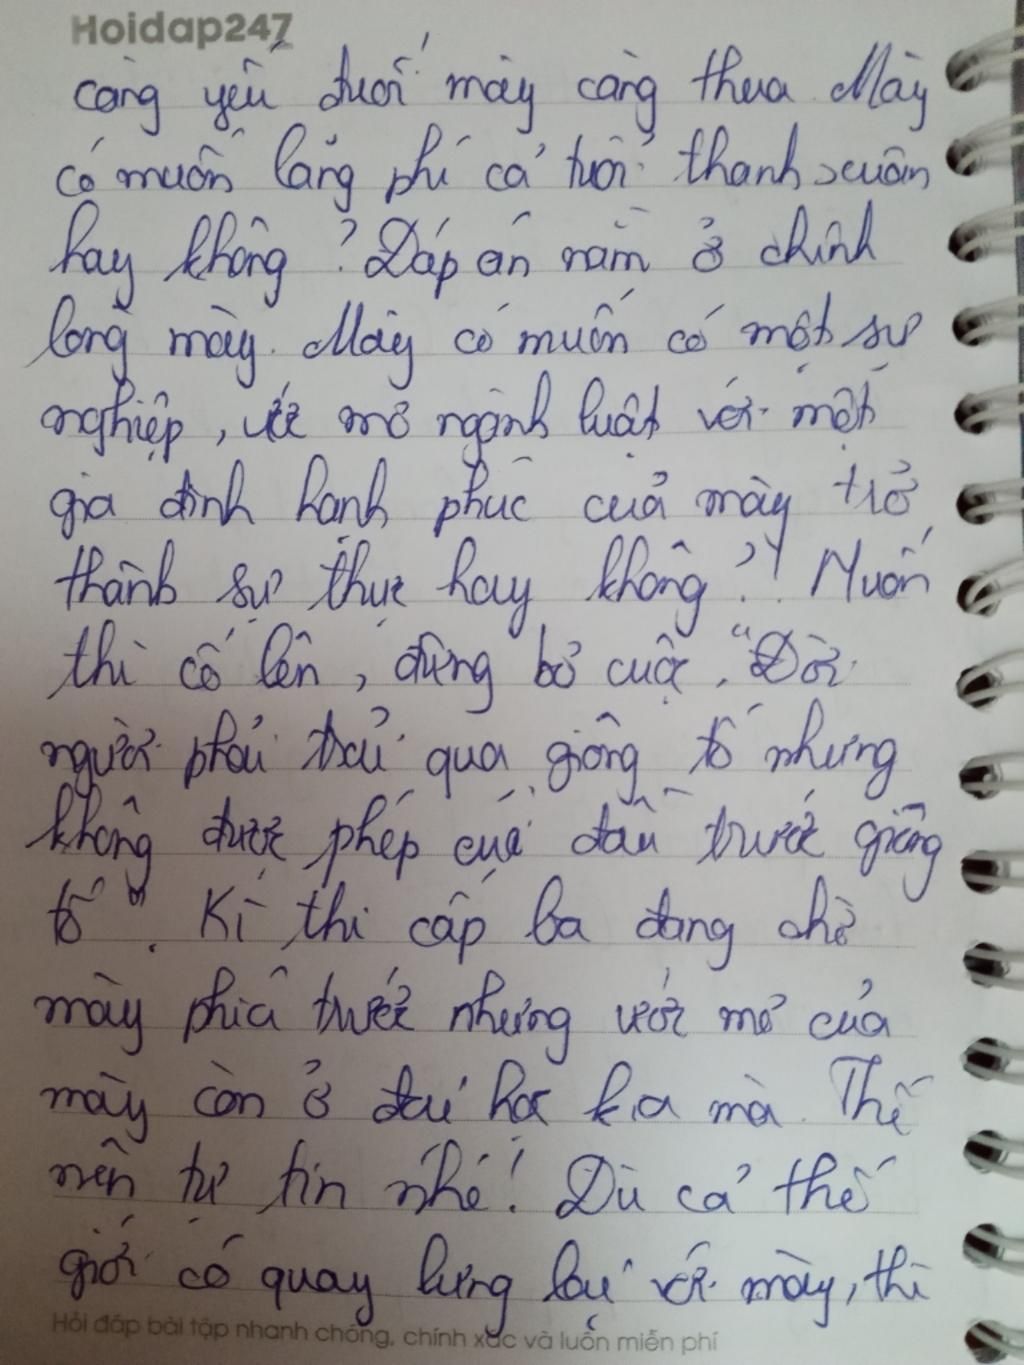 Hoidap247
càng yếu đuối mày càng thua. Mày
có muốn lãng phí cả tuổi thanh xuân
hay không? Đáp án nằm ở chính
lòng mày. Mày có muốn có một sự
nghiệp, ước mơ ngành luật với một
gia đình hạnh phúc của mày trở
thành sự thực hay không?! Muốn
thì cố lên, đừng bỏ cuộc. "Đời
người phải trải qua giông tố nhưng
không được phép cúi đầu trước giông
tố". Kì thi cấp ba đang chờ
mày phía trước nhưng ước mơ của
mày còn ở đại học kia mà. Thế
nên tự tin nhé! Dù cả thế
giới có quay lưng lại với mày, thì
Hỏi đáp bài tập nhanh chóng, chính xác và luôn miễn phí